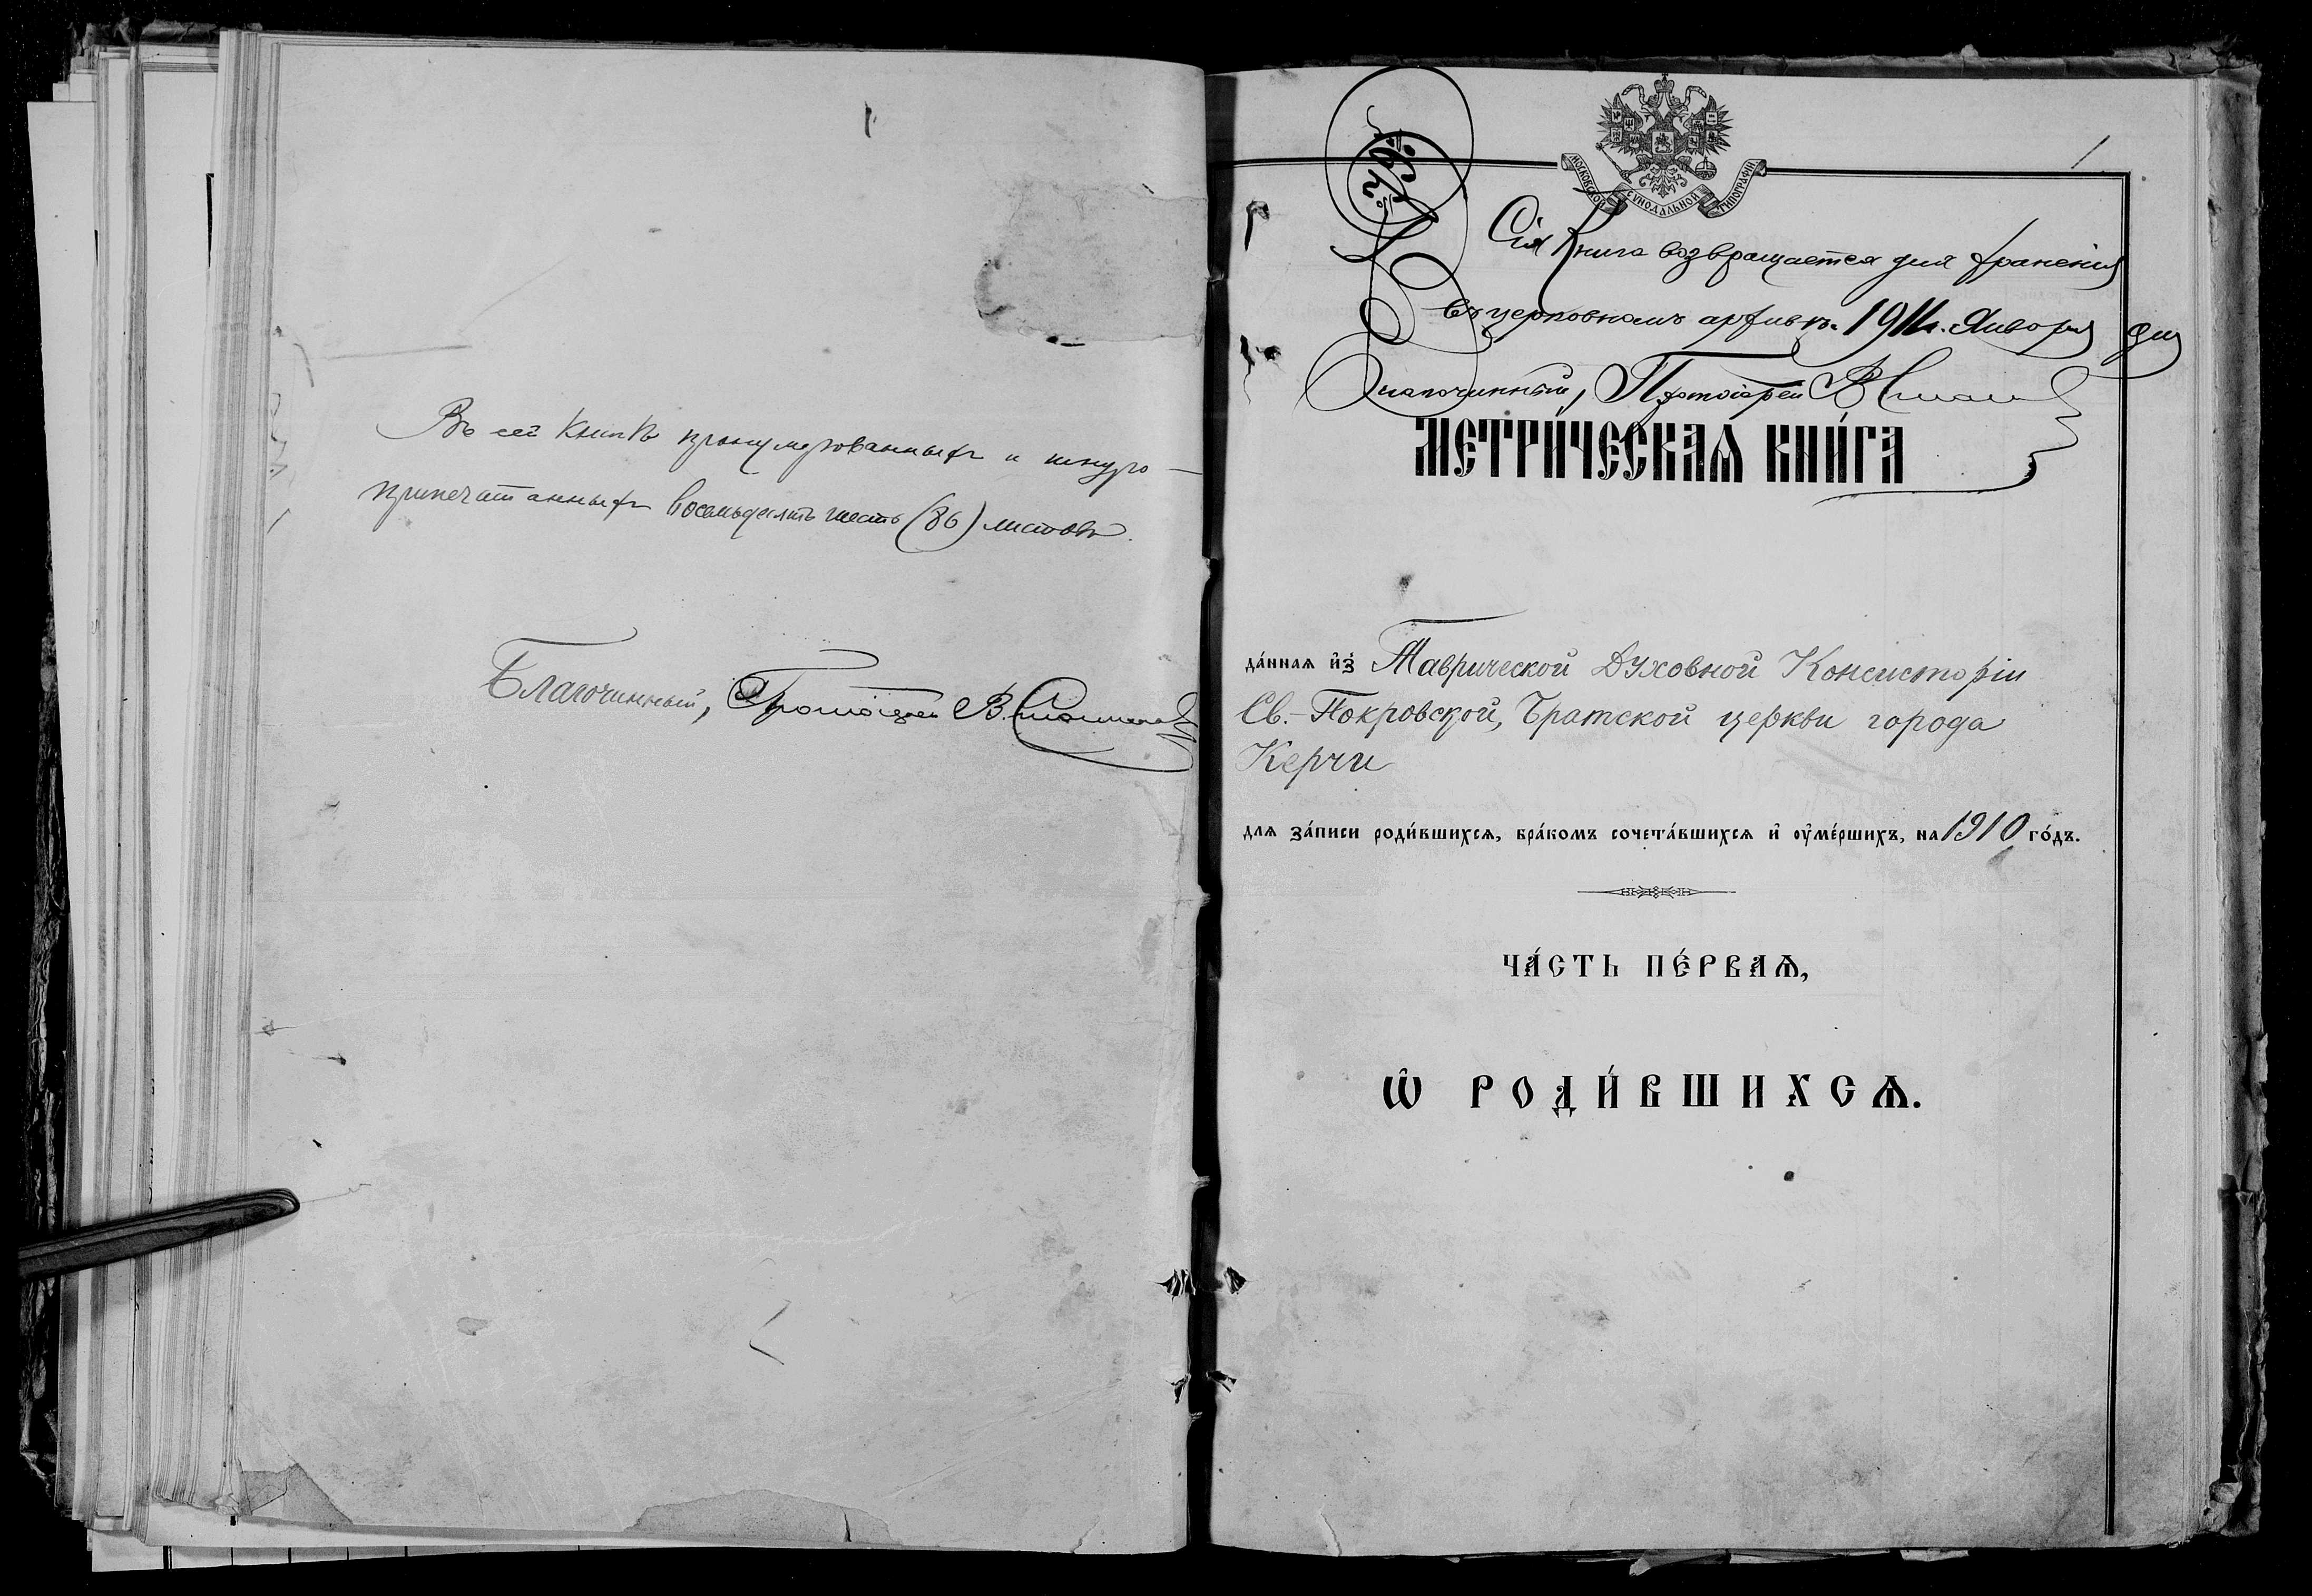 Въ сей книгѣ пронумерованныхъ и шнуро-
припечатанныхъ восемьдесятъ шесть (86) листовъ.
Благочинный, Протоіерей В.
1
МОСКОВСКОЙ СѴНОДАЛЬНОЙ ТИПОГРАФІИ
Сія Книга возвращается для храненія
въ церковномъ архивѣ. 1911 г. Января дня
Благочинный, Протоіерей В
МЕТРИ́ЧЕСКАѦ КНИ́ГА
да́ннаѧ и҆з̾ Таврической Духовной Консисторіи
Св.-Покровской, Братской церкви города
Керчи
для за́писи роди́вшихсѧ, бра́комъ сочета́вшихсѧ и҆ ѹ҆ме́ршихъ, на 1910 го́дъ.
ЧА́СТЬ ПЕ́РВАѦ,
Ѡ҆ РОДИ́ВШИХСѦ.